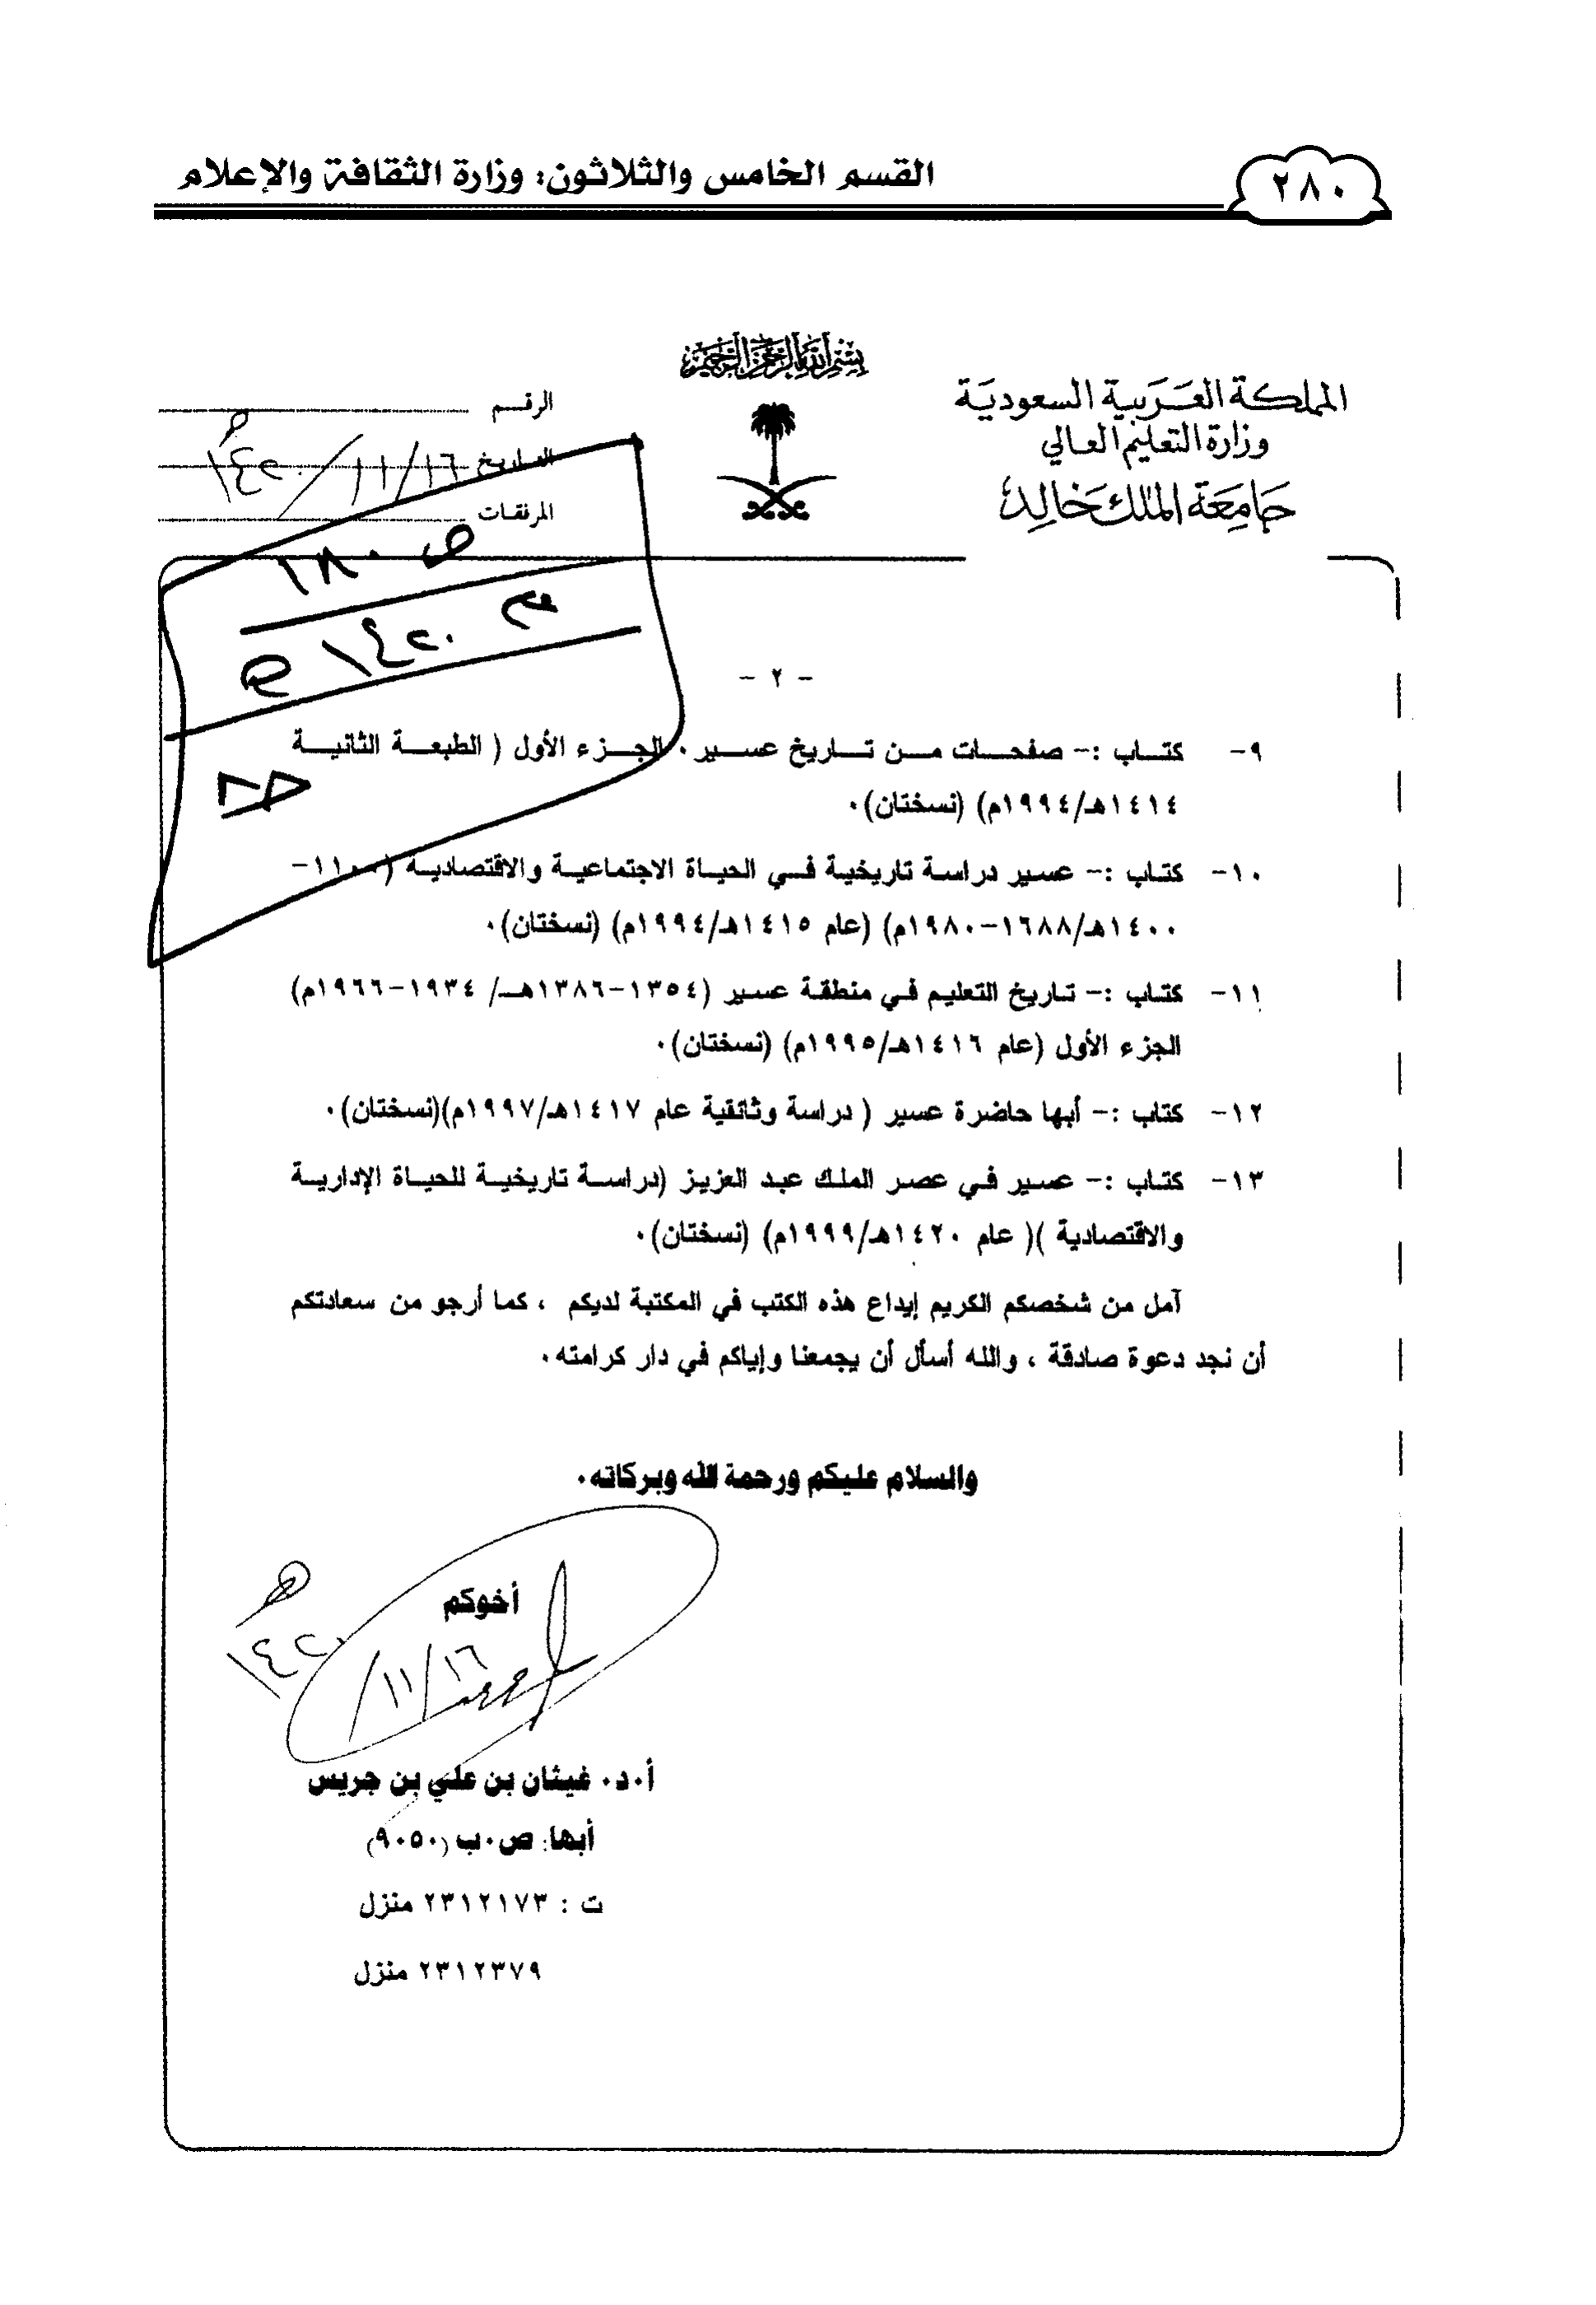 القسم الخامس والثلاثون: وزارة الثقافة والإعلام
٢٨٠
بسم الله الرحمن الرحيم
المملكة العربية السعودية
وزارة التعليم العالي
جامعة الملك خالد
الرقم
التاريخ ١٤٢٠/١١/١٦ هـ
المرفقات
ص ١٨٠
م ١٤٢٠ هـ
- ٢ -
٩- كتاب :- صفحات من تاريخ عسير . الجزء الأول ( الطبعة الثانية
١٤١٤هـ/١٩٩٤م) (نسختان).
١٠- كتاب :- عسير دراسة تاريخية في الحياة الاجتماعية والاقتصادية (١١٠٠-
١٤٠٠هـ/١٦٨٨-١٩٨٠م) (عام ١٤١٥هـ/١٩٩٤م) (نسختان).
١١- كتاب :- تاريخ التعليم في منطقة عسير (١٣٥٤-١٣٨٦هـ/ ١٩٣٤-١٩٦٦م)
الجزء الأول (عام ١٤١٦هـ/١٩٩٥م) (نسختان).
١٢- كتاب :- أبها حاضرة عسير ( دراسة وثائقية عام ١٤١٧هـ/١٩٩٧م)(نسختان).
١٣- كتاب :- عسير في عصر الملك عبد العزيز (دراسة تاريخية للحياة الإدارية
والاقتصادية )( عام ١٤٢٠هـ/١٩٩٩م) (نسختان).
آمل من شخصكم الكريم إيداع هذه الكتب في المكتبة لديكم ، كما أرجو من سعادتكم
أن نجد دعوة صادقة ، والله أسأل أن يجمعنا وإياكم في دار كرامته.
والسلام عليكم ورحمة الله وبركاته.
أخوكم
١٤٢٠/١١/١٦ هـ
أ.د. غيثان بن علي بن جريس
أبها: ص.ب (٩٠٥٠)
ت : ٢٣١٢١٧٣ منزل
٢٣١٢٣٧٩ منزل